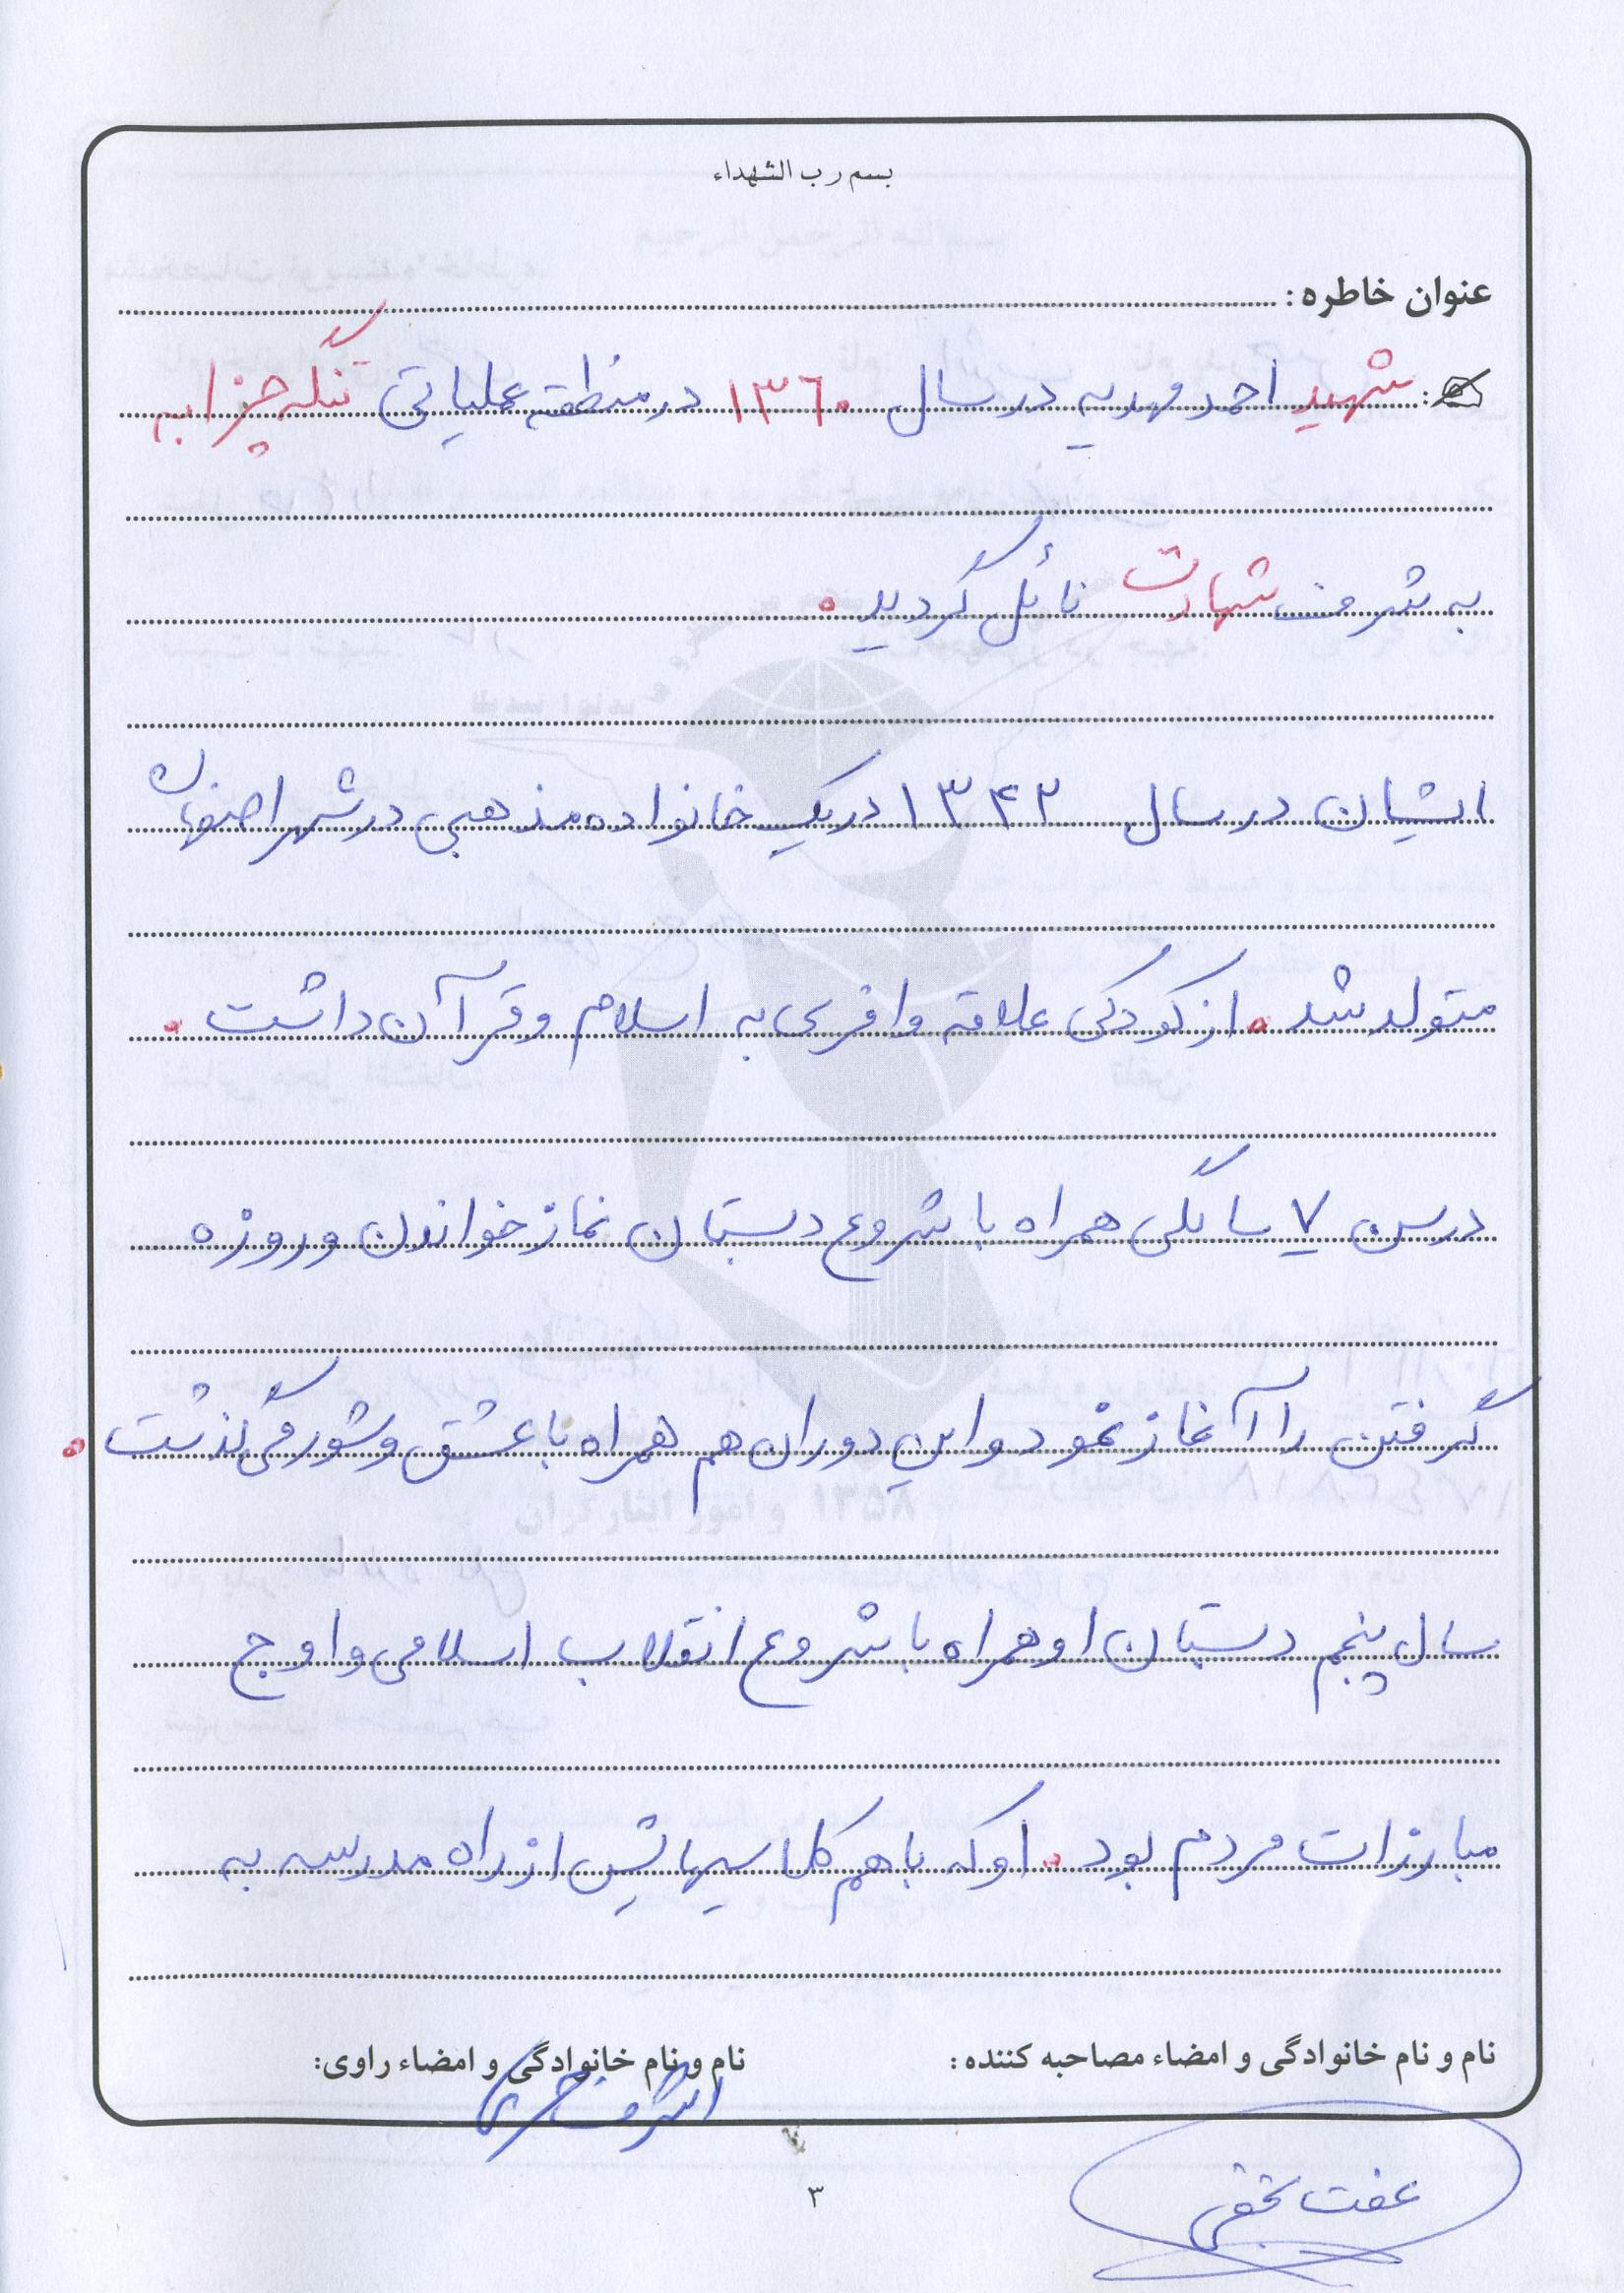 بسم رب الشهداء
عنوان خاطره:
شهید احمد مهدیه در سال ۱۳۶۰ در منطقه عملیاتی تنگه چزابه
به شرف شهادت نائل گردید.
ایشان در سال ۱۳۴۲ در یک خانواده مذهبی در شهر اصفهان
متولد شد. از کودکی علاقه وافری به اسلام و قرآن داشت.
در سن ۷ سالگی همراه با شروع دبستان نماز خواندن و روزه
گرفتن را آغاز نمود و این دوران هم همراه با عشق و شور می گذشت.
سال پنجم دبستان او همراه با شروع انقلاب اسلامی و اوج
مبارزات مردم بود. او که با هم کلاسیهایش از راه مدرسه به
نام و نام خانوادگی و امضاء مصاحبه کننده:
نام و نام خانوادگی و امضاء راوی:
اشرف
عفت
۳